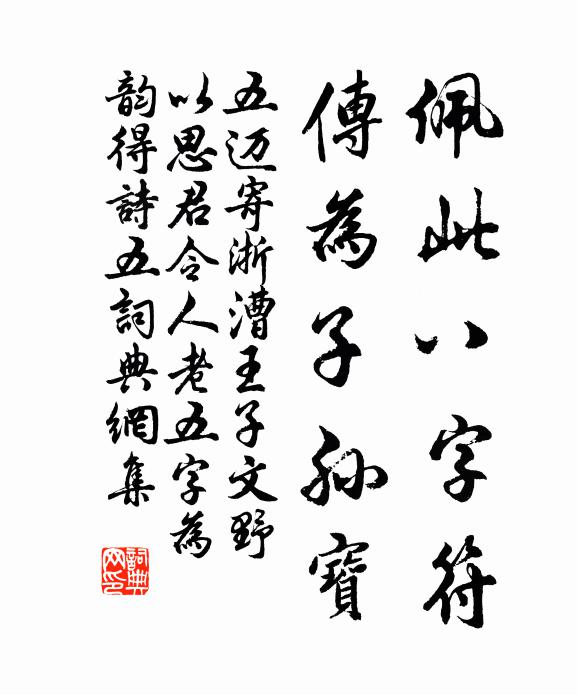 佩此八字符
傳為子孫寶
五迈寄浙漕王子文野
以思君令人老五字為
韵得詩五詞典網集
詞典网印